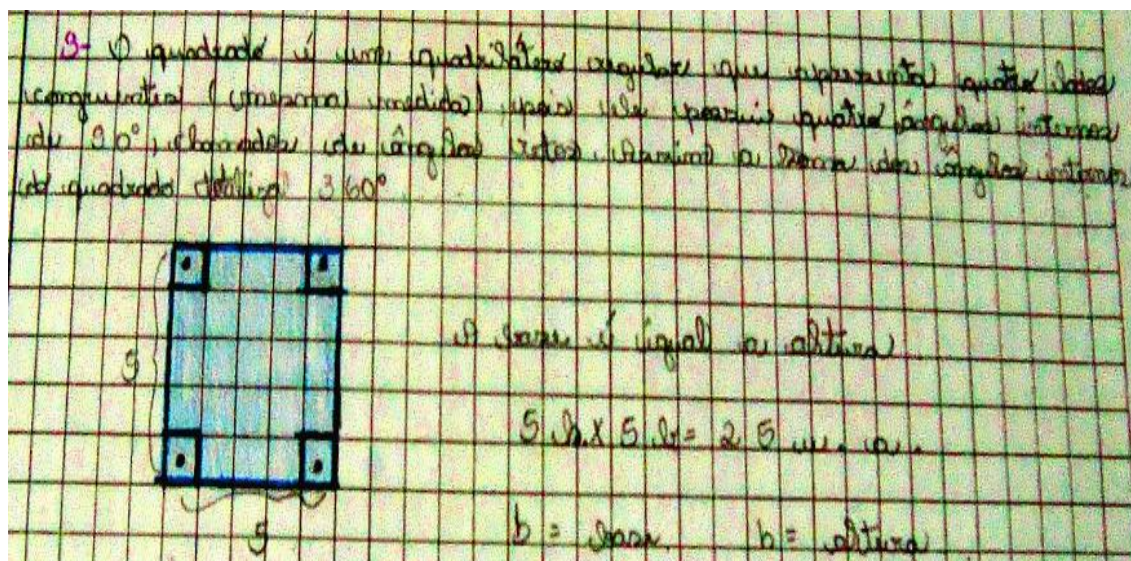 3- O quadrado é um quadrilátero regular que apresenta quatro lados
congruentes (mesma medida), pois ele possui quatro ângulos internos
de 90°, chamados de ângulos retos. Assim a soma dos ângulos internos
do quadrado totaliza 360°.
A base é igual a altura
5
5 h x 5 b = 25 u. a.
5
b = base h = altura